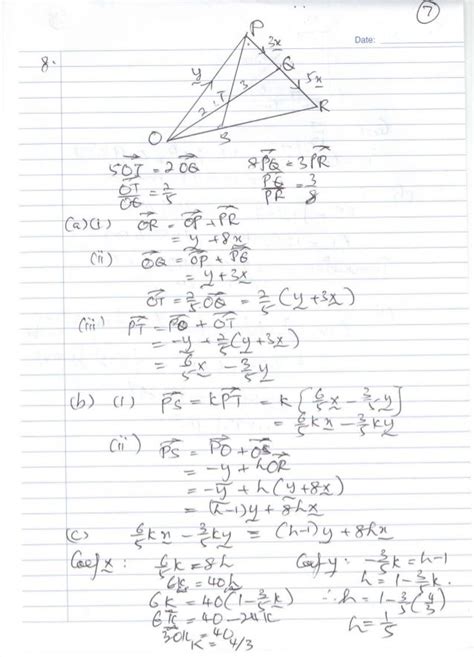 7
Date:
8.
P
3x
Q
y
5x
2 T 3
R
O
S
5OT = 2OQ 8PQ = 3PR
OT/OQ = 2/5 PQ/PR = 3/8
(a)(i) OR = OP + PR
= y + 8x
(ii) OQ = OP + PQ
= y + 3x
OT = 2/5 OQ = 2/5 (y + 3x)
(iii) PT = PO + OT
= -y + 2/5 (y + 3x)
= 6/5 x - 3/5 y
(b) (i) PS = kPT = k [6/5 x - 3/5 y]
= 6/5 kx - 3/5 ky
(ii) PS = PO + OS
= -y + hOR
= -y + h(y + 8x)
= (h-1)y + 8hx
(c) 6/5 kx - 3/5 ky = (h-1)y + 8hx
Coef x: 6/5 k = 8h Coef y: -3/5 k = h-1
6k = 40h h = 1 - 3/5 k
6k = 40(1 - 3/5 k) ∴ h = 1 - 3/5 (4/3)
6k = 40 - 24k h = 1/5
30k = 40
k = 4/3